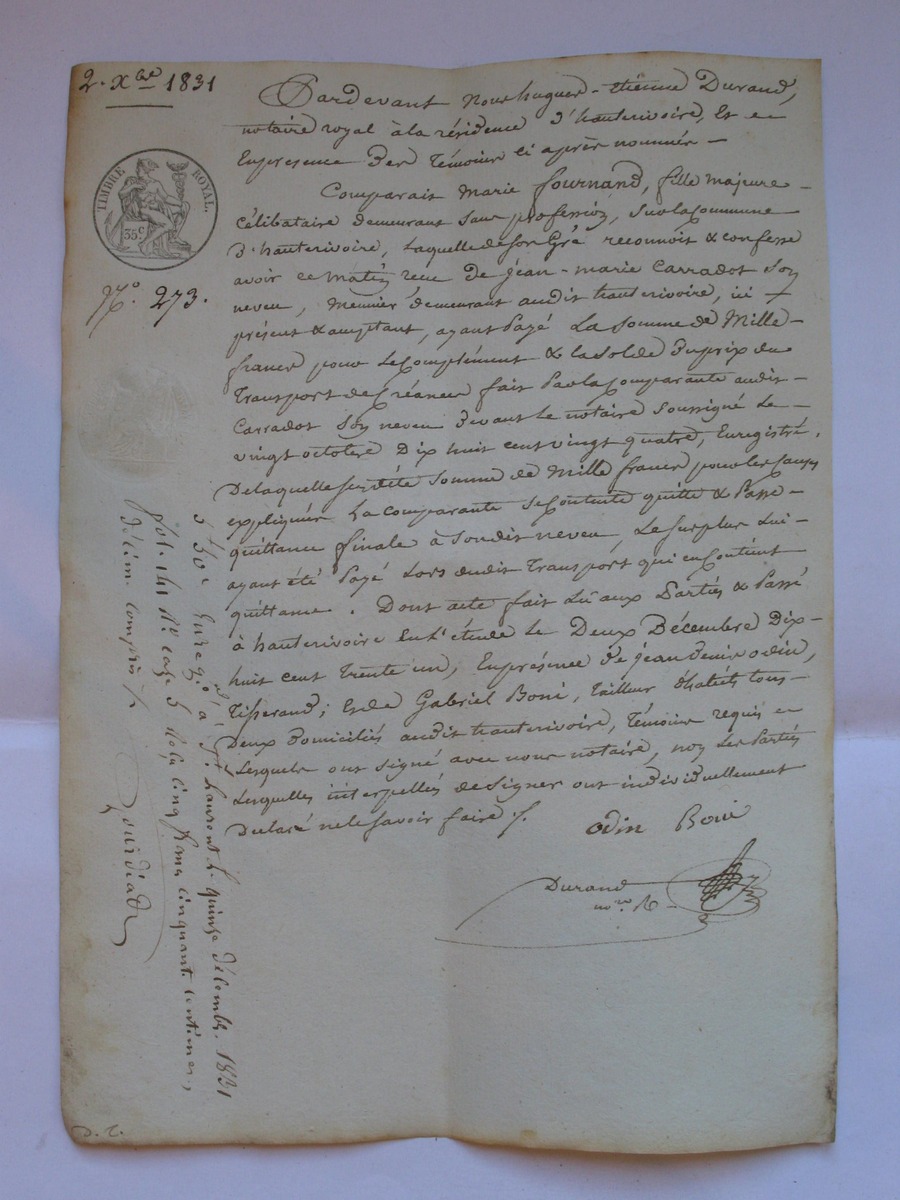 2. Xbre 1831
TIMBRE ROYAL.
35 c
N.° 273.
Pardevant Nous hugues-étienne Durand,
notaire royal à la résidence d'hauterivoire, Et en
Enpresence des témoins ci après nommés –
Comparait Marie fournand, fille majeure –
Célibataire demeurant sans profession, sur la Commune
d'hauterivoire, Laquelle de son Gré reconnoit & confesse
avoir ce matin recu De jean-marie Carradot Son
neveu, Meunier demeurant audit hauterivoire, ici
présent & acceptant, ayant Payé La somme de Mille –
francs pour le Complément & la solde du prix du
Transport de Créances fait Par la Comparante audit –
Carradot Son neveu devant Le notaire soussigné Le –
vingt octobre Dix huit cent vingt quatre, Enregistré.
De laquelle susdite Somme de Mille francs pour les causes
expliquées La comparante se Contente quitte & Passe –
quittance finale à Sondit neveu, Le surplus Lui –
ayant été Payé Lors dudit Transport qui en Contient
quittance. Dont acte fait Lû aux Parties & Passé
à hauterivoire En L'étude Le Deux Décembre Dix –
huit cent trente un, En présence De jean denis odin,
Tisserand; Et de Gabriel Boni, Tailleur d'habits tous –
Deux Domiciliés audit hauterivoire, Témoins requis –
Lesquels ont signé avec nous notaire, non Les Parties
Lesquelles interpellés de Signer ont individuellement
Declaré ne le savoir faire ./.
odin Boni
Durand
no.re R.
5 f 50 c Enreg.é à S.t Laurent le quinze décembre 1831
fol. C. 5 Reçu cinq francs cinquante centimes,
décim. compris ./.
D. C.